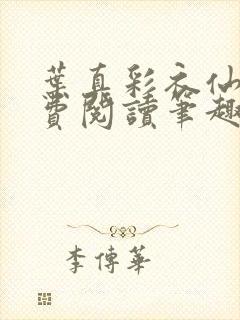 葉真彩衣仙
費閱讀筆趣
李傳華